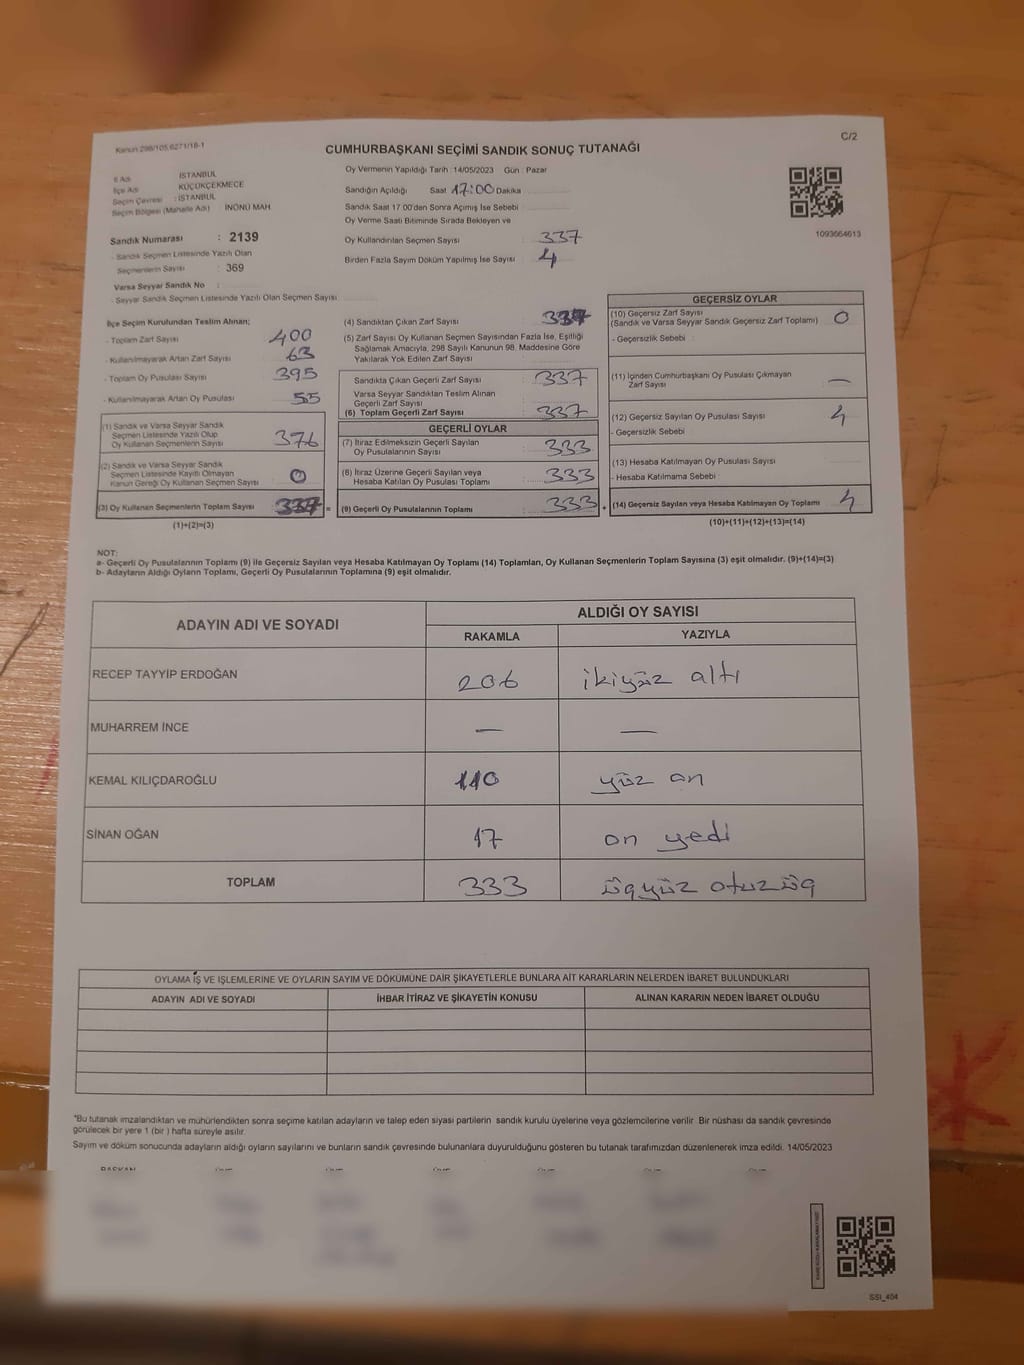 Kanun 298/105,6271/18-1
C/2
CUMHURBAŞKANI SEÇİMİ SANDIK SONUÇ TUTANAĞI
İl Adı : İSTANBUL
İlçe Adı : KÜÇÜKÇEKMECE
Seçim Çevresi : İSTANBUL
Seçim Bölgesi (Mahalle Adı) : İNÖNÜ MAH
Sandık Numarası : 2139
- Sandık Seçmen Listesinde Yazılı Olan
Seçmenlerin Sayısı : 369
Varsa Seyyar Sandık No :
- Seyyar Sandık Seçmen Listesinde Yazılı Olan Seçmen Sayısı
Oy Vermenin Yapıldığı Tarih :14/05/2023 Gün : Pazar
Sandığın Açıldığı Saat 17:00 Dakika
Sandık Saat 17.00'den Sonra Açımış İse Sebebi
Oy Verme Saati Bitiminde Sırada Bekleyen ve
Oy Kullandırılan Seçmen Sayısı : 337
Birden Fazla Sayım Döküm Yapılmış İse Sayısı : 4
1093664613
İlçe Seçim Kurulundan Teslim Alınan;
- Toplam Zarf Sayısı 400
- Kullanılmayarak Artan Zarf Sayısı 63
- Toplam Oy Pusulası Sayısı 395
- Kullanılmayarak Artan Oy Pusulası 55
(1) Sandık ve Varsa Seyyar Sandık
Seçmen Listesinde Yazılı Olup
Oy Kullanan Seçmenlerin Sayısı 376
(2) Sandık ve Varsa Seyyar Sandık
Seçmen Listesinde Kayıtlı Olmayan
Kanun Gereği Oy Kullanan Seçmen Sayısı 0
(3) Oy Kullanan Seçmenlerin Toplam Sayısı 337 =
(1)+(2)=(3)
(4) Sandıktan Çıkan Zarf Sayısı : 337
(5) Zarf Sayısı Oy Kullanan Seçmen Sayısından Fazla İse, Eşitliği
Sağlamak Amacıyla, 298 Sayılı Kanunun 98. Maddesine Göre
Yakılarak Yok Edilen Zarf Sayısı
Sandıkta Çıkan Geçerli Zarf Sayısı : 337
Varsa Seyyar Sandıktan Teslim Alınan
Geçerli Zarf Sayısı
(6) Toplam Geçerli Zarf Sayısı : 337
GEÇERLİ OYLAR
(7) İtiraz Edilmeksizin Geçerli Sayılan
Oy Pusulalarının Sayısı 333
(8) İtiraz Üzerine Geçerli Sayılan veya
Hesaba Katılan Oy Pusulası Toplamı : 333
(9) Geçerli Oy Pusulalarının Toplamı : 333 +
GEÇERSİZ OYLAR
(10) Geçersiz Zarf Sayısı
(Sandık ve Varsa Seyyar Sandık Geçersiz Zarf Toplamı) 0
- Geçersizlik Sebebi :
(11) İçinden Cumhurbaşkanı Oy Pusulası Çıkmayan
Zarf Sayısı —
(12) Geçersiz Sayılan Oy Pusulası Sayısı 4
- Geçersizlik Sebebi
(13) Hesaba Katılmayan Oy Pusulası Sayısı
- Hesaba Katılmama Sebebi
(14) Geçersiz Sayılan veya Hesaba Katılmayan Oy Toplamı 4
(10)+(11)+(12)+(13)=(14)
NOT:
a- Geçerli Oy Pusulalarının Toplamı (9) ile Geçersiz Sayılan veya Hesaba Katılmayan Oy Toplamı (14) Toplamları, Oy Kullanan Seçmenlerin Toplam Sayısına (3) eşit olmalıdır. (9)+(14)=(3)
b- Adayların Aldığı Oyların Toplamı, Geçerli Oy Pusulalarının Toplamına (9) eşit olmalıdır.
ADAYIN ADI VE SOYADI
ALDIĞI OY SAYISI
RAKAMLA YAZIYLA
RECEP TAYYİP ERDOĞAN 206 ikiyüz altı
MUHARREM İNCE — —
KEMAL KILIÇDAROĞLU 110 yüz on
SİNAN OĞAN 17 on yedi
TOPLAM 333 üçyüz otuzüç
OYLAMA İŞ VE İŞLEMLERİNE VE OYLARIN SAYIM VE DÖKÜMÜNE DAİR ŞİKAYETLERLE BUNLARA AİT KARARLARIN NELERDEN İBARET BULUNDUKLARI
ADAYIN ADI VE SOYADI İHBAR İTİRAZ VE ŞİKAYETİN KONUSU ALINAN KARARIN NEDEN İBARET OLDUĞU
*Bu tutanak imzalandıktan ve mühürlendikten sonra seçime katılan adayların ve talep eden siyasi partilerin sandık kurulu üyelerine veya gözlemcilerine verilir. Bir nüshası da sandık çevresinde
görülecek bir yere 1 (bir ) hafta süreyle asılır.
Sayım ve döküm sonucunda adayların aldığı oyların sayılarını ve bunların sandık çevresinde bulunanlara duyurulduğunu gösteren bu tutanak tarafımızdan düzenlenerek imza edildi. 14/05/2023
BAŞKAN
SSI_404